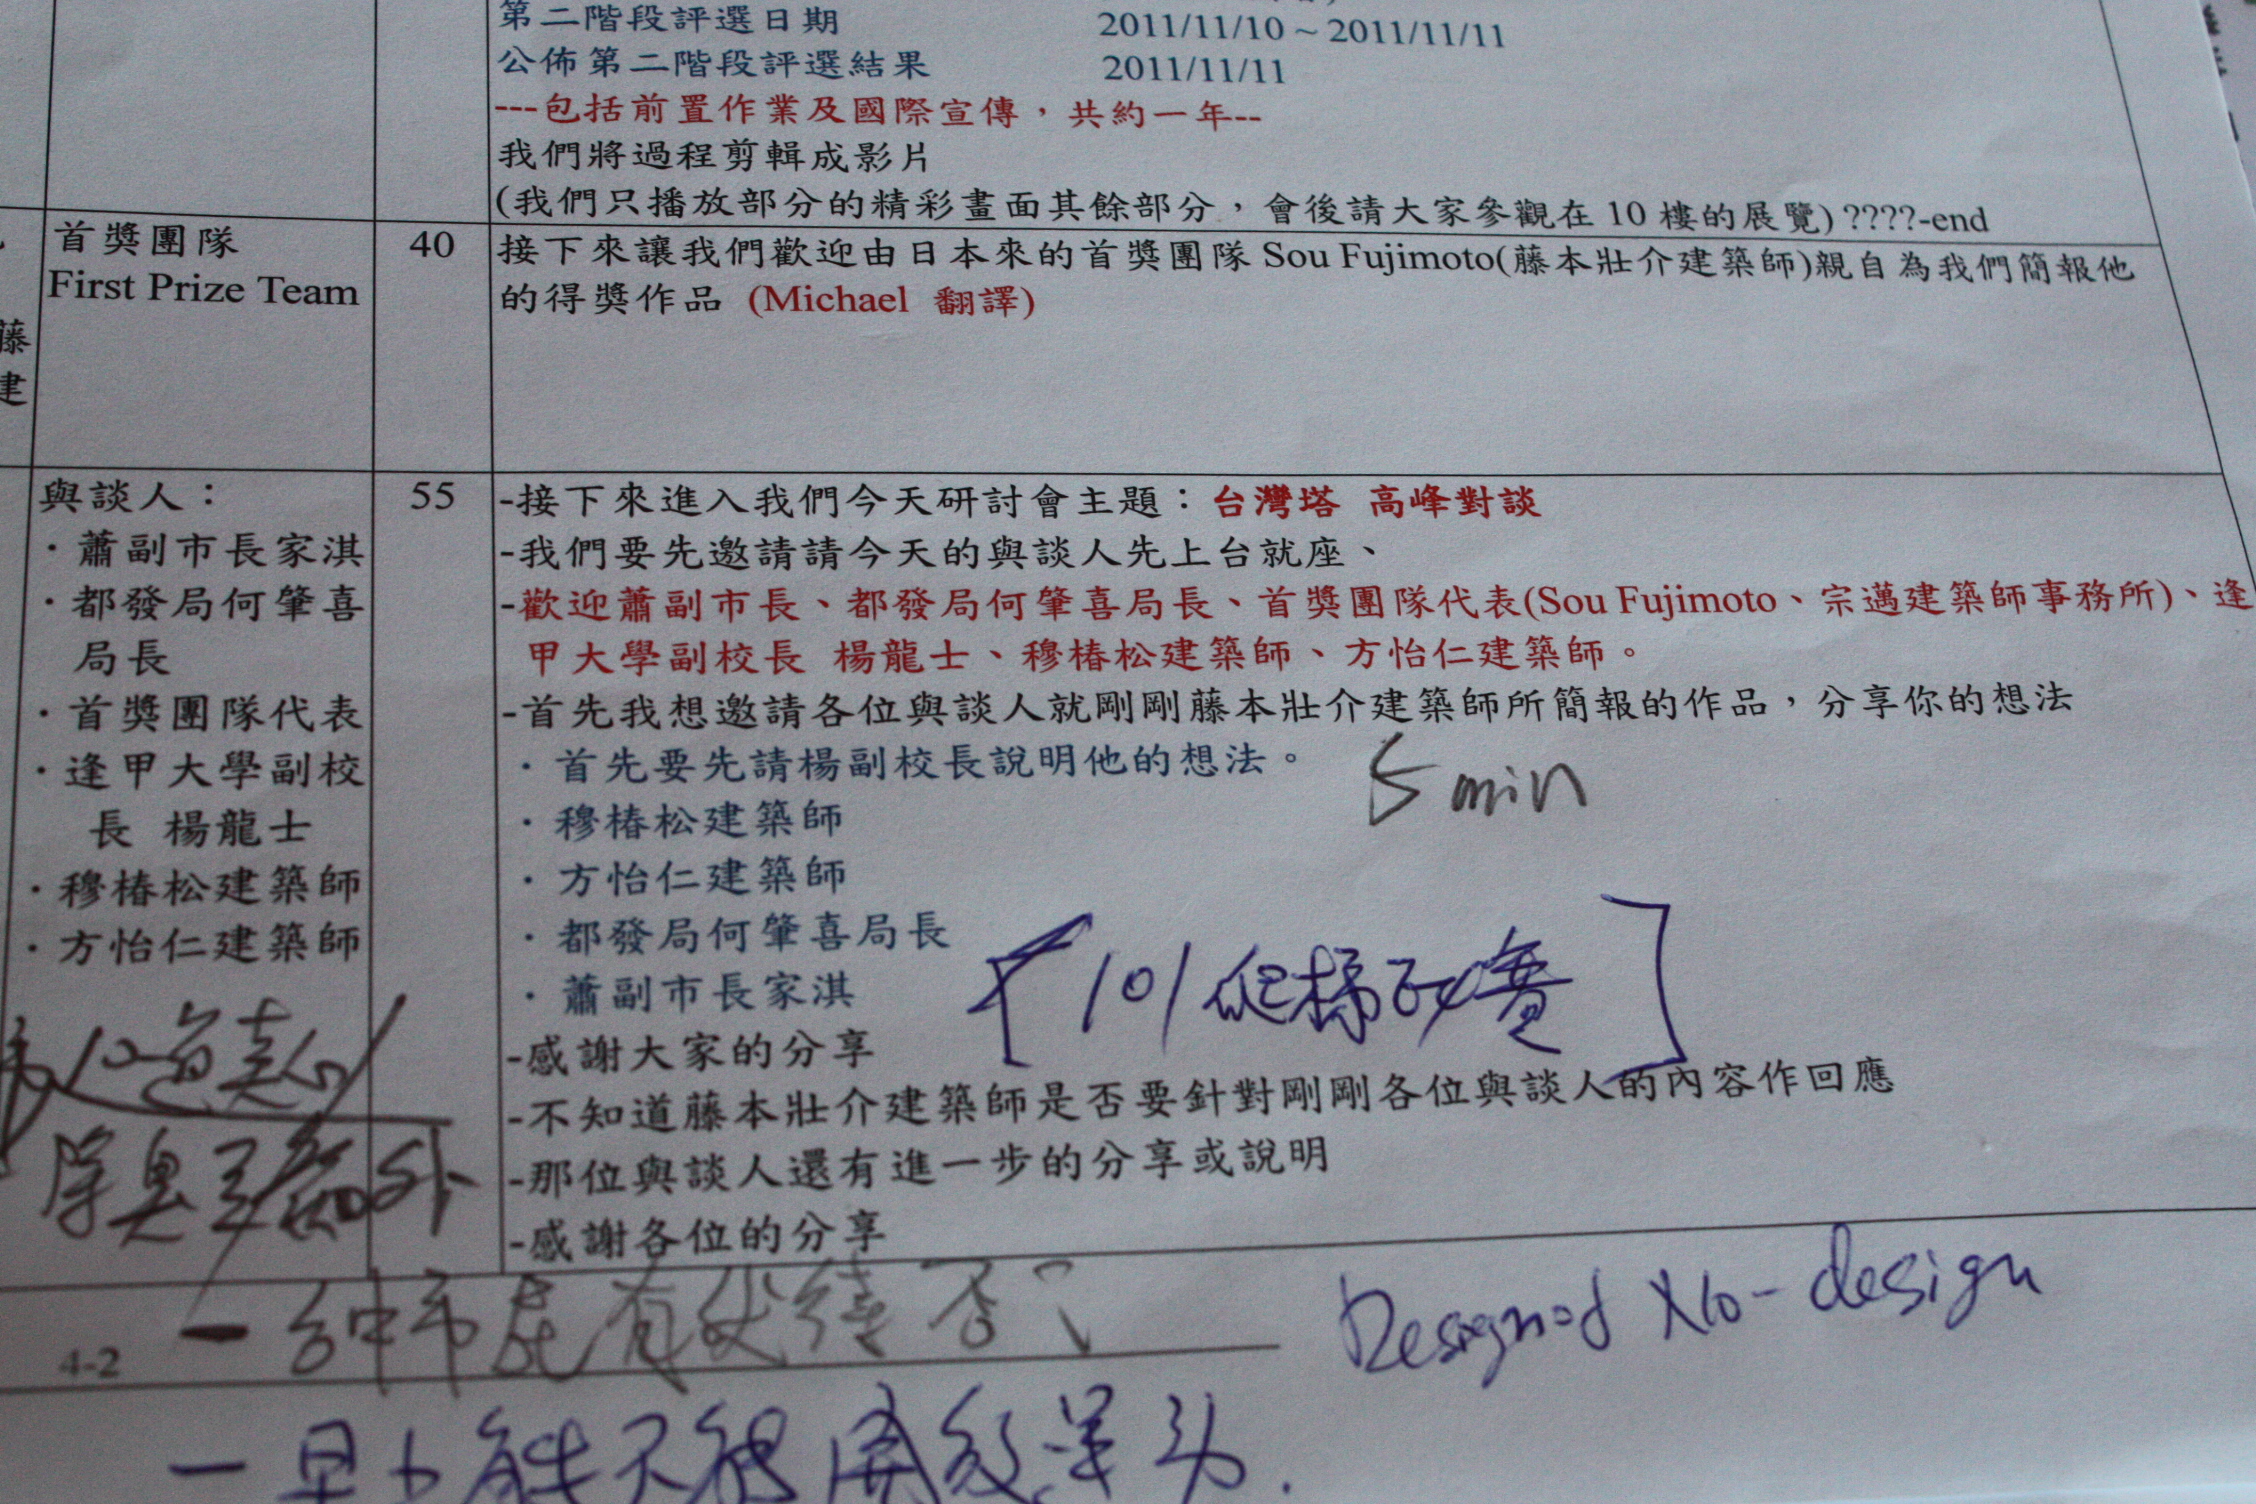 第二階段評選日期 2011/11/10 ~ 2011/11/11
公佈第二階段評選結果 2011/11/11
---包括前置作業及國際宣傳，共約一年--
我們將過程剪輯成影片
(我們只播放部分的精彩畫面其餘部分，會後請大家參觀在 10 樓的展覽) ????-end
藤
建
首獎團隊
First Prize Team
40
接下來讓我們歡迎由日本來的首獎團隊 Sou Fujimoto(藤本壯介建築師)親自為我們簡報他
的得獎作品 (Michael 翻譯)
與談人：
・蕭副市長家淇
・都發局何肇喜
局長
・首獎團隊代表
・逢甲大學副校
長 楊龍士
・穆椿松建築師
・方怡仁建築師
55
-接下來進入我們今天研討會主題：台灣塔 高峰對談
-我們要先邀請請今天的與談人先上台就座、
-歡迎蕭副市長、都發局何肇喜局長、首獎團隊代表(Sou Fujimoto、宗邁建築師事務所)、逢
甲大學副校長 楊龍士、穆椿松建築師、方怡仁建築師。
-首先我想邀請各位與談人就剛剛藤本壯介建築師所簡報的作品，分享你的想法
・首先要先請楊副校長說明他的想法。
5 min
・穆椿松建築師
・方怡仁建築師
・都發局何肇喜局長
・蕭副市長家淇
「101爬梯
-感謝大家的分享
-不知道藤本壯介建築師是否要針對剛剛各位與談人的內容作回應
-那位與談人還有進一步的分享或說明
-感謝各位的分享
外
一台中市民有
否
4-2
design
一
能不能